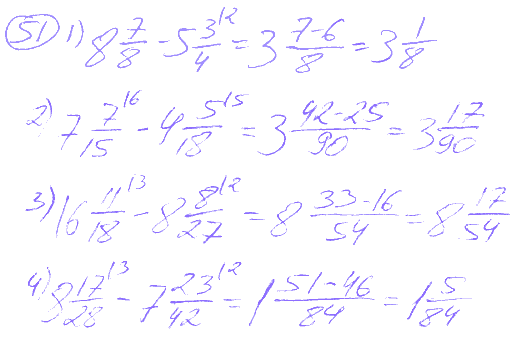 51 1) 8 7/8 - 5 3/4 \2 = 3 (7-6)/8 = 3 1/8
2) 7 7/15 \6 - 4 5/18 \5 = 3 (42-25)/90 = 3 17/90
3) 16 11/18 \3 - 8 8/27 \2 = 8 (33-16)/54 = 8 17/54
4) 8 17/28 \3 - 7 23/42 \2 = 1 (51-46)/84 = 1 5/84